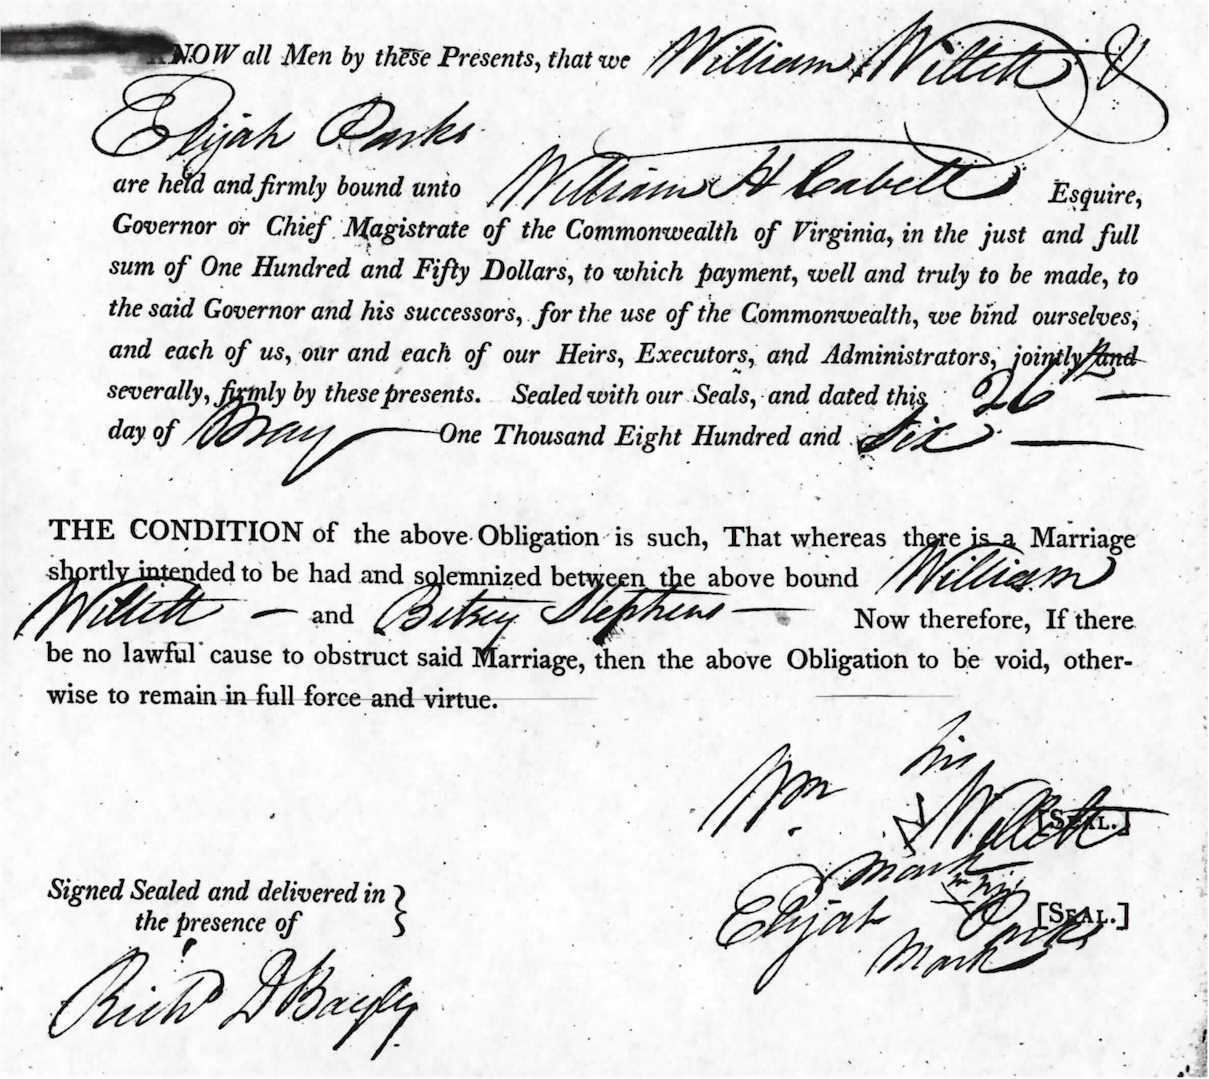 KNOW all Men by these Presents, that we William Willett &
Elijah Parks
are held and firmly bound unto William H Cabell Esquire,
Governor or Chief Magistrate of the Commonwealth of Virginia, in the just and full
sum of One Hundred and Fifty Dollars, to which payment, well and truly to be made, to
the said Governor and his successors, for the use of the Commonwealth, we bind ourselves,
and each of us, our and each of our Heirs, Executors, and Administrators, jointly and
severally, firmly by these presents. Sealed with our Seals, and dated this 26th
day of May One Thousand Eight Hundred and Six
THE CONDITION of the above Obligation is such, That whereas there is a Marriage
shortly intended to be had and solemnized between the above bound William
Willett and Betsey Stephens Now therefore, If there
be no lawful cause to obstruct said Marriage, then the above Obligation to be void, other-
wise to remain in full force and virtue.
his
Wm Willett [SEAL.]
mark
his
Elijah Parks [SEAL.]
mark
Signed Sealed and delivered in
the presence of
Richd D Bayly